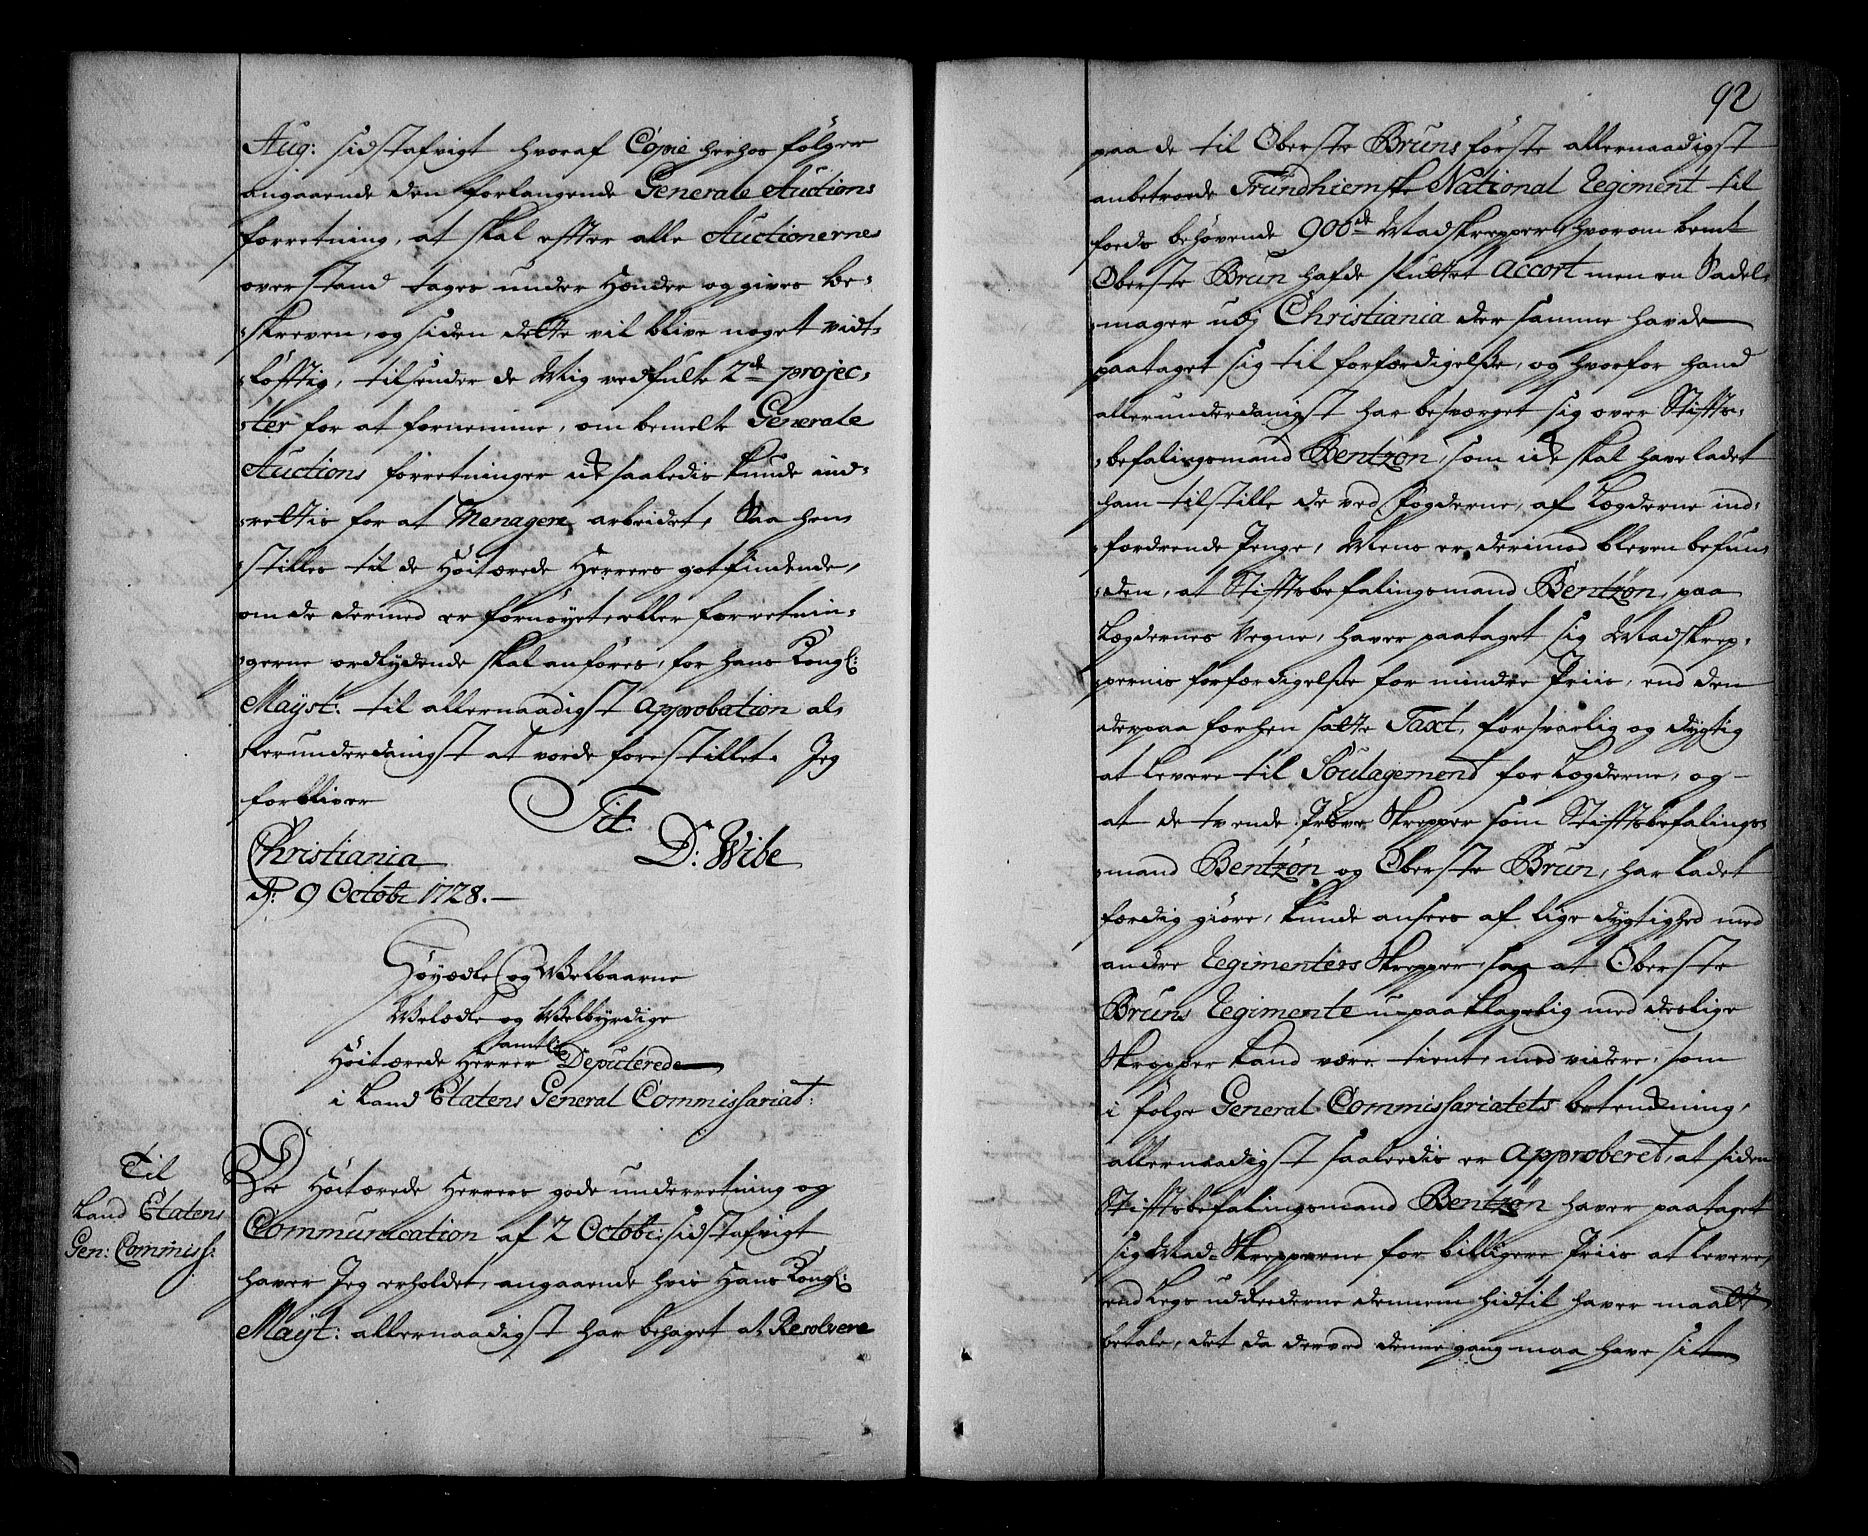 Aug: sidstafvigt hvoraf Copie herhos følger
angaaende den forlangende Generale Auctions
forretning, at skal efter alle Auctionernes
overstand tages under Hænder og gives be-
skreven, og siden dette vil blive noget vidt-
løfftig, tilsender de Mig vedfulte 2de projec-
ter for at fornemme, om bemelte Generale
Auctions forretninger ici saaledis kunde ind-
rettis for at Menagere arbeidet, Saa hen
stilles til de Høitærede Herrers gotfindende,
om de dermed er fornøyet, eller forretnin-
gerne ordlydende skal anføres, for hans Kongl:
Mayst: til allernaadigst Approbation al-
lerunderdanigst at vorde forestillet. Jeg
forbliver
Tit:
Christiania D: Wibe
d: 9 Octobr 1728.
Høyædle og Welbaarne
Welædle og Welbyrdige
Høitærede Herrer samtlige Deputerede
i Land Etatens General Commissariat:
Til
Land Etatens
Gen: Commiss:
De Høitærede Herrers gode underretning og
Communication af 2 Octobr: sidstafvigt
haver Jeg erholdet, angaaende hvis Hans Kongl:
Mayst: allernaadigst har behaget at Resolvere
92
paa de til Oberste Bruns første allernaadigst
anbetroede Trundhiemske National Regiment til
foeds behøvende 900de Madskrepper, hvorom bemt
Oberste Brun hafde sluttet accort men en Sadel-
mager udj Christiania der samme havde
paataget sig til forfærdigelse, og hvorfor hand
allerunderdanigst har besværget sig over Stifts-
befalingsmand Bentzon, som ici skal have ladet
ham tilstille de ved Fogderne, af Lægderne ind-
fordrende Penge, Mens er derimod bleven befun-
den, at Stiftsbefalingsmand Bentzon, paa
Lægdernes Vegne, haver paataget sig Madskrep-
pernis forfærdigelse for mindre Priis, end den
derpaa forhen satte Taxt, forsvarlig og dygtig
at levere til Soulagement for Lægderne, og
at de tvende Prøve Skrepper som Stiftsbefalings-
mand Bentzon og Oberste Brun, har ladet
færdig giøre, kunde ansees af lige dygtighed med
andre Regimenters Skrepper, saa at Oberste
Bruns Regimente upaaklagelig med deslige
Skrepper kand være tient, med videre, som
i følge General Commissariatets betænkning,
allernaadigst saaledis er Approberet, at siden
Stiftsbefalingsmand Bentzon haver paataget
sig Mad-Skrepperne for billigere Priis at levere,
end Legs udreederne dennem hidtil haver maat
betale, det da derved denne gang maa have sit